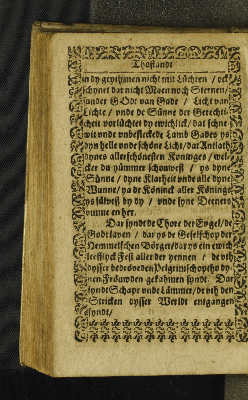 Thostandt
in dy gryttymen nicht mit Lüchten / ock
schynet dar nicht Maen noch Sternen/
sunder GOdt van Gade / Licht van
Lichte / unde de Sünne der Gerechtic-
heit vorlüchtet dy ewichlick / dat schne
wit unde unbefleckede Lamb Gades ys
dyn helle unde schöne Licht/dat Antlath
dynes allerschönesten Köninges / wel-
cker du yümmer schouwest / ys dyne
Sünne / dyne Klarheit unde alle dyne
Wunne/ya de Köninck aller Köninge
ys sülvest by dy / unde syne Deeners
umme en her.
Dar syndt de Chore der Engel/de
Godtlaven / dar ys de Geselschop der
Hemmelschen Börger/dar ys ein ewich
leeflyck Fest aller der yennen / de uth
dysser bedröveden Pelgrimschop tho dy-
nen Fröuwden gekamen syndt. Dar
syndt Schape unde Lämmer/de uth den
Stricken dysser Werldt entgangen
syndt/